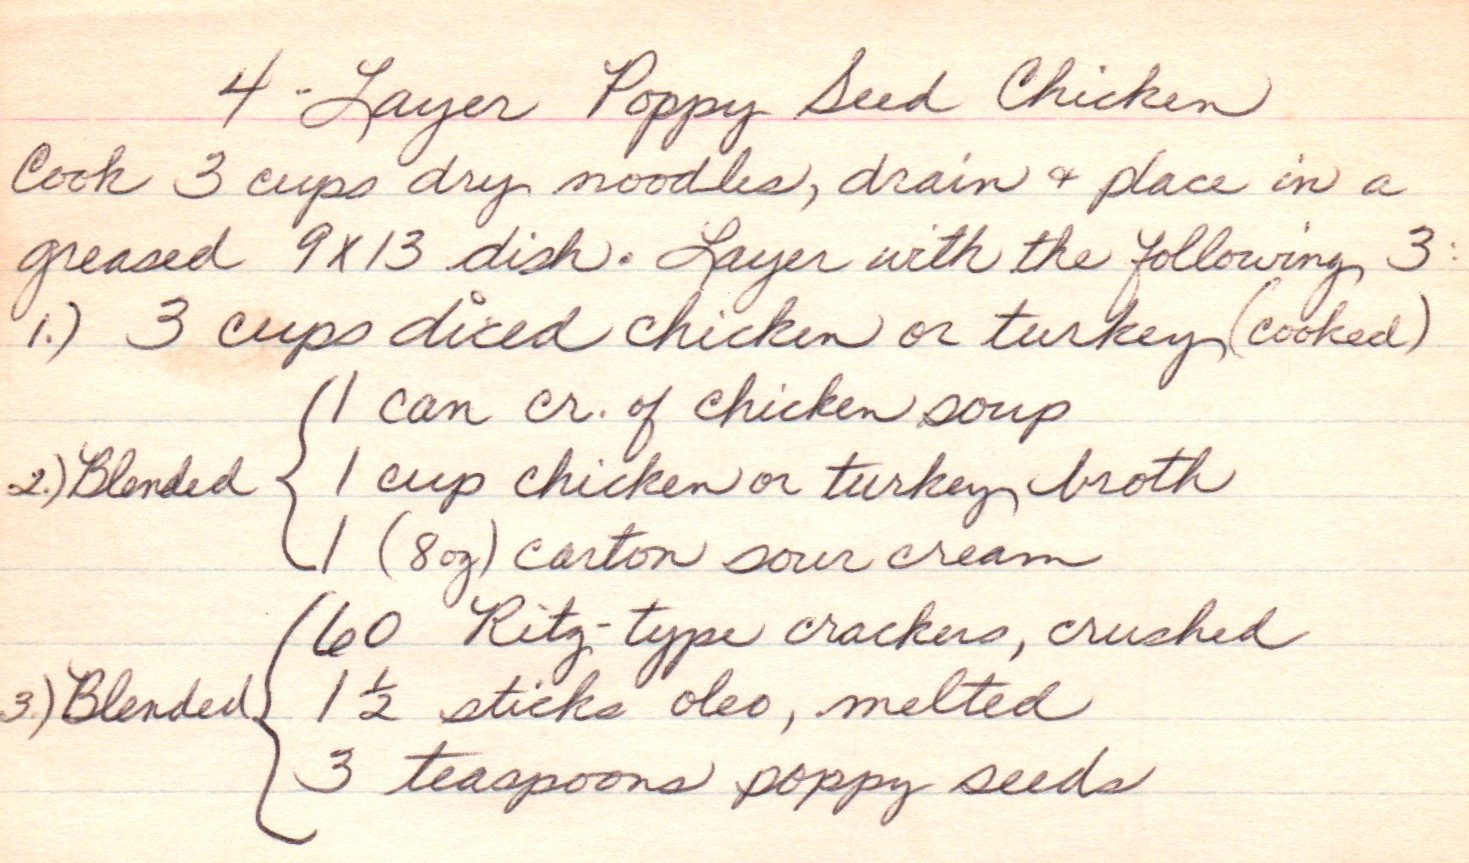 4-Layer Poppy Seed Chicken
Cook 3 cups dry noodles, drain & place in a
greased 9x13 dish. Layer with the following 3:
1.) 3 cups diced chicken or turkey (cooked)
1 can cr. of chicken soup
2.) Blended { 1 cup chicken or turkey broth
1 (8oz) carton sour cream
60 Ritz-type crackers, crushed
3.) Blended { 1 1/2 sticks oleo, melted
3 teaspoons poppy seeds